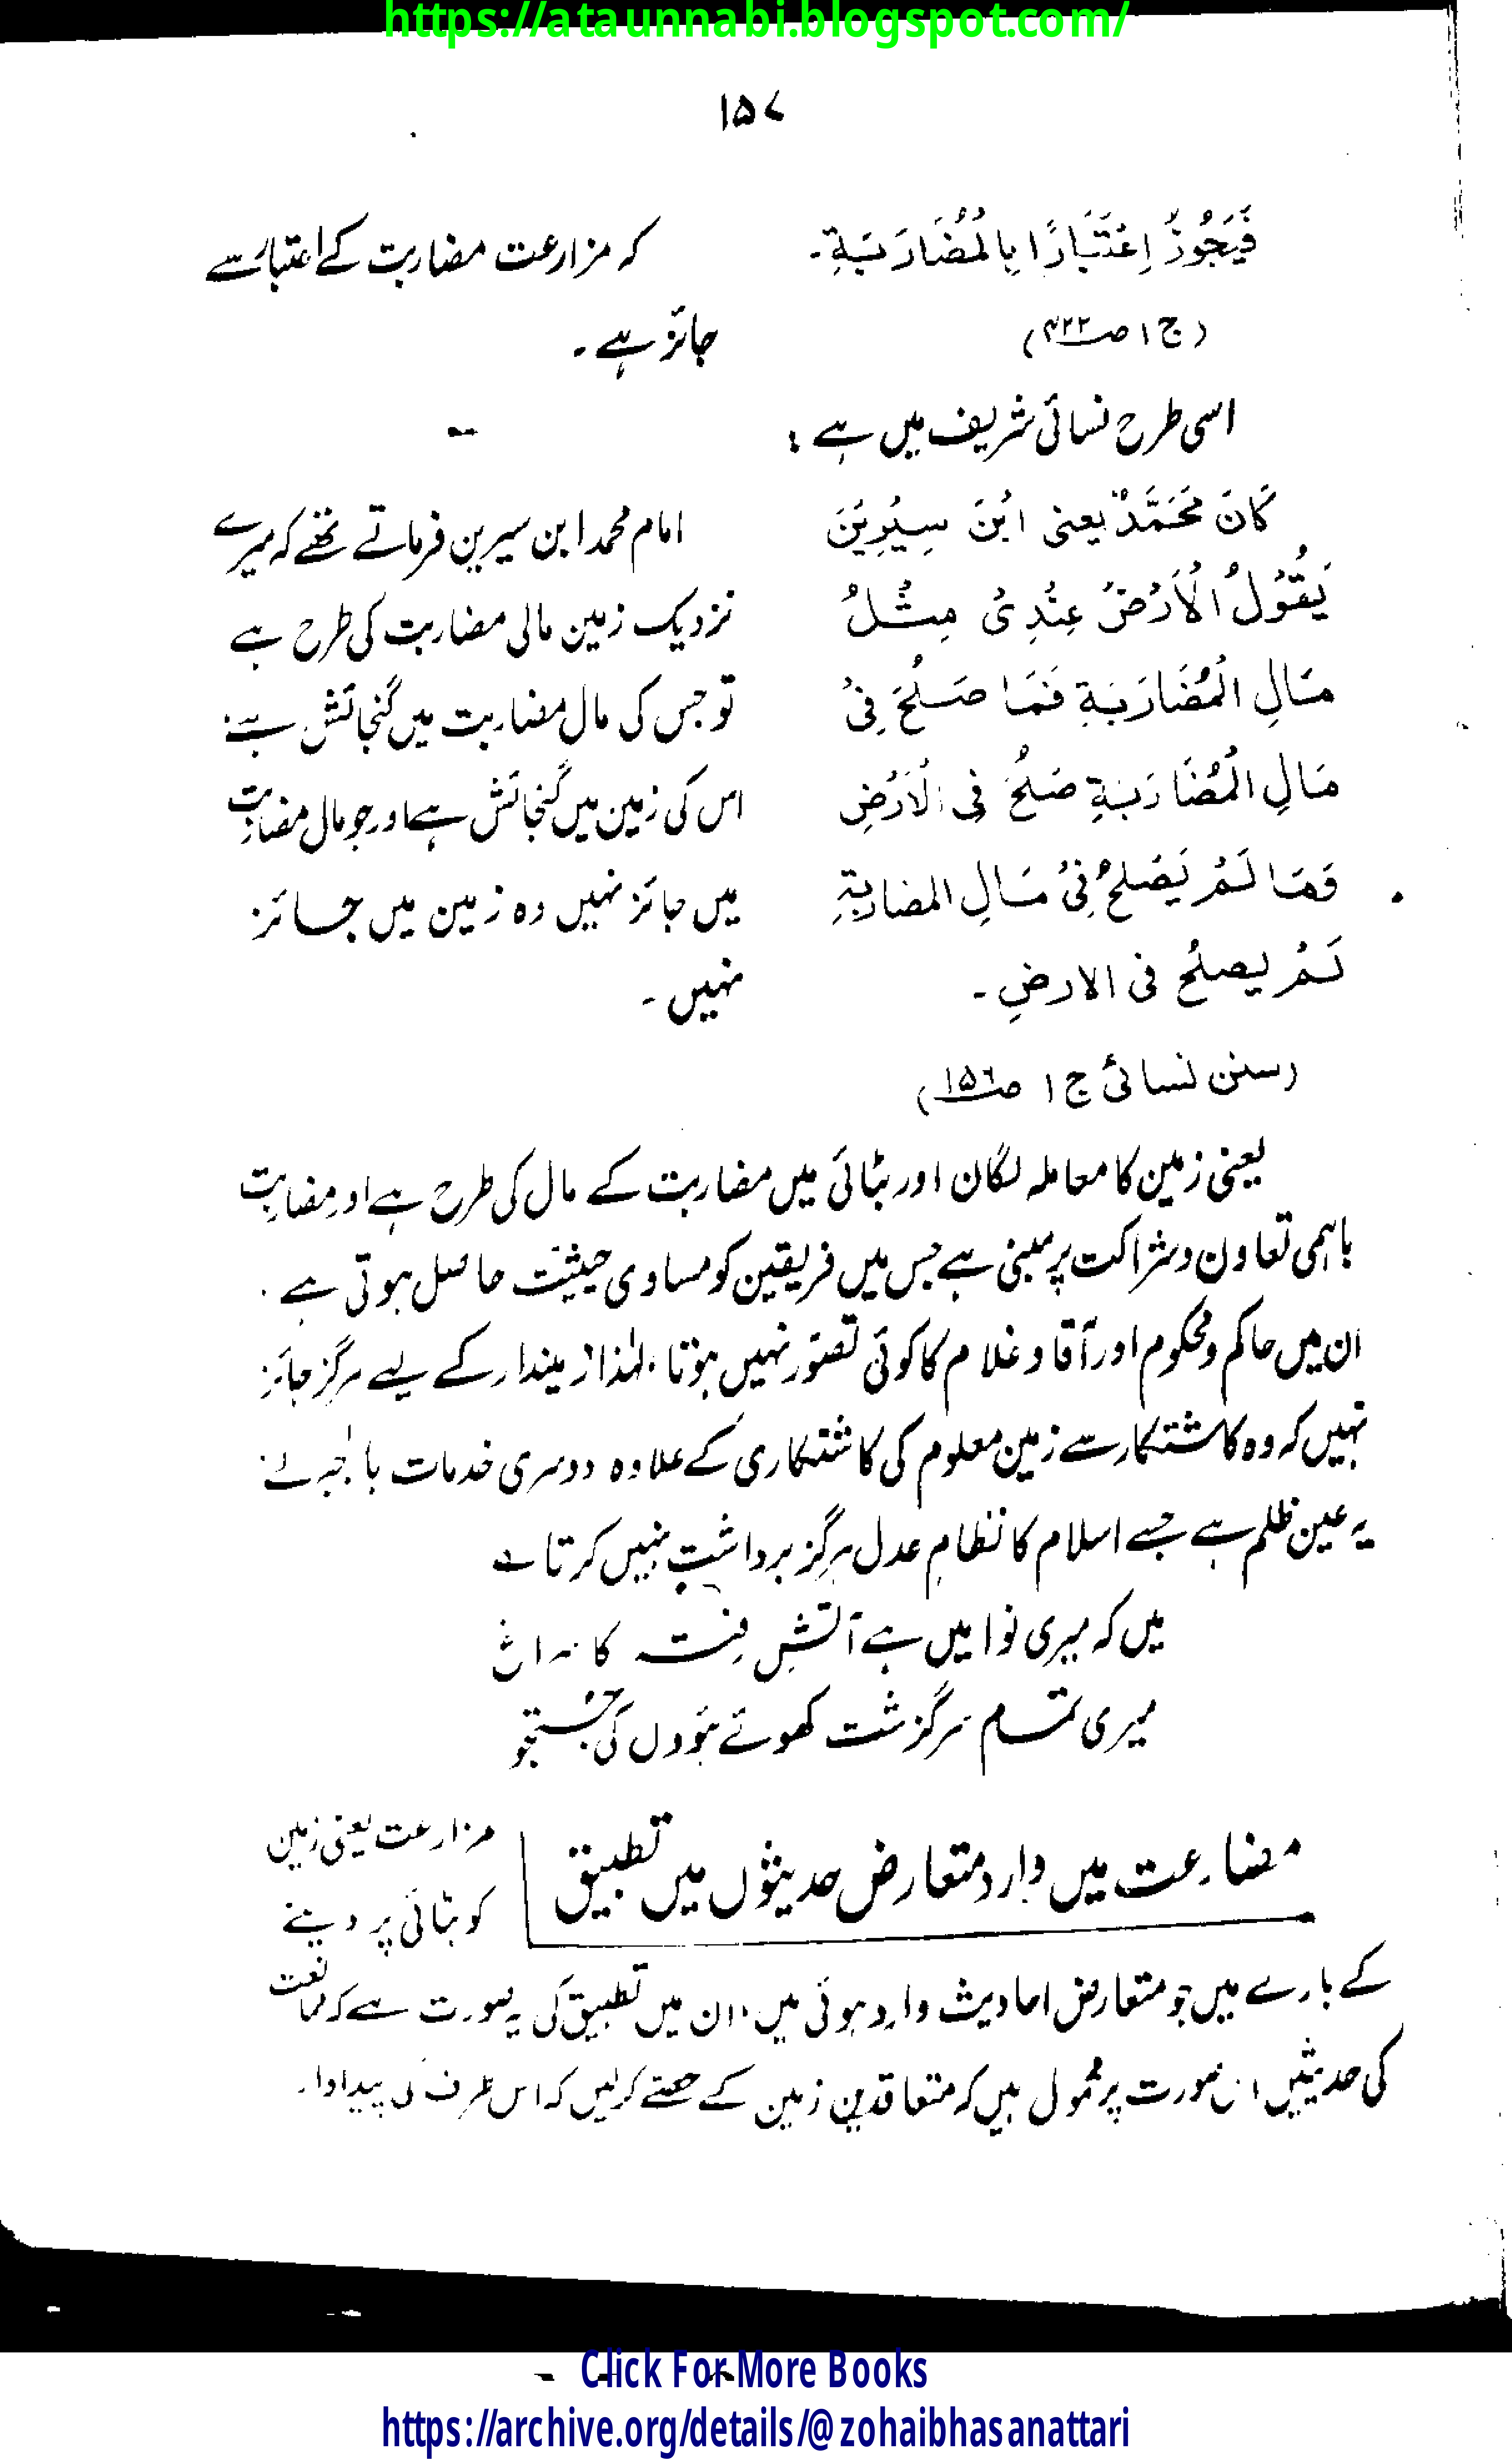 https://ataunnabi.blogspot.com/
۱۵۷
فَيَجُوْزُ اِعْتَبَارًا بِالْمُضَارَبَةِ۔
(ج ۱ ص۴۲۲)
کہ مزارعت مضاربت کے اعتبار سے
جائز ہے۔
اسی طرح نسائی شریف میں ہے:
كَانَ مُحَمَّدٌ يعنى ابْنَ سِيْرِيْنَ
يَقُوْلُ الْاَرْضُ عِنْدِىْ مِثْلُ
مَالِ الْمُضَارَبَةِ فَمَا صَلُحَ فِىْ
مَالِ الْمُضَارَبَةِ صَلُحَ فِى الْاَرْضِ
وَمَا لَمْ يَصْلُحْ فِىْ مَالِ المضاربةِ
لَمْ يصلُح فى الارضِ۔
(سنن نسائی ج ۱ ص۱۵۶)
امام محمد ابن سیرین فرماتے تھے کہ میرے
نزدیک زمین مالی مضاربت کی طرح ہے
تو جس کی مال مضاربت میں گنجائش ہے
اس کی زمین میں گنجائش ہے اور جو مال مضاربت
میں جائز نہیں وہ زمین میں جائز
نہیں۔
یعنی زمین کا معاملہ لگان اور بٹائی میں مضاربت کے مال کی طرح ہے اور مضاربت
باہمی تعاون و شراکت پر مبنی ہے جس میں فریقین کو مساوی حیثیت حاصل ہوتی ہے۔
ان میں حاکم و محکوم اور آقا و غلام کا کوئی تصوّر نہیں ہوتا، لہٰذا زمیندار کے لیے ہرگز جائز
نہیں کہ وہ کاشتکار سے زمین معلوم کی کاشتکاری کے علاوہ دوسری خدمات بالجبر لے
یہ عین ظلم ہے جسے اسلام کا نظامِ عدل ہرگز برداشت نہیں کرتا ے
میں کہ میری نوا میں ہے آتشِ رفتہ کا سراغ
میری تمام سرگزشت کھوئے ہوؤں کی جستجو
مضارعت میں وارد متعارض حدیثوں میں تطبیق
مزارعت یعنی زمین
کو بٹائی پر دینے
کے بارے میں جو متعارض احادیث وارد ہوئی ہیں، ان میں تطبیق کی یہ صورت ہے کہ ممانعت
کی حدیثیں اس صورت پر محمول ہیں کہ متعاقدین زمین کے حصّے کرلیں کہ اس طرف کی پیداوار
Click For More Books
https://archive.org/details/@zohaibhasanattari